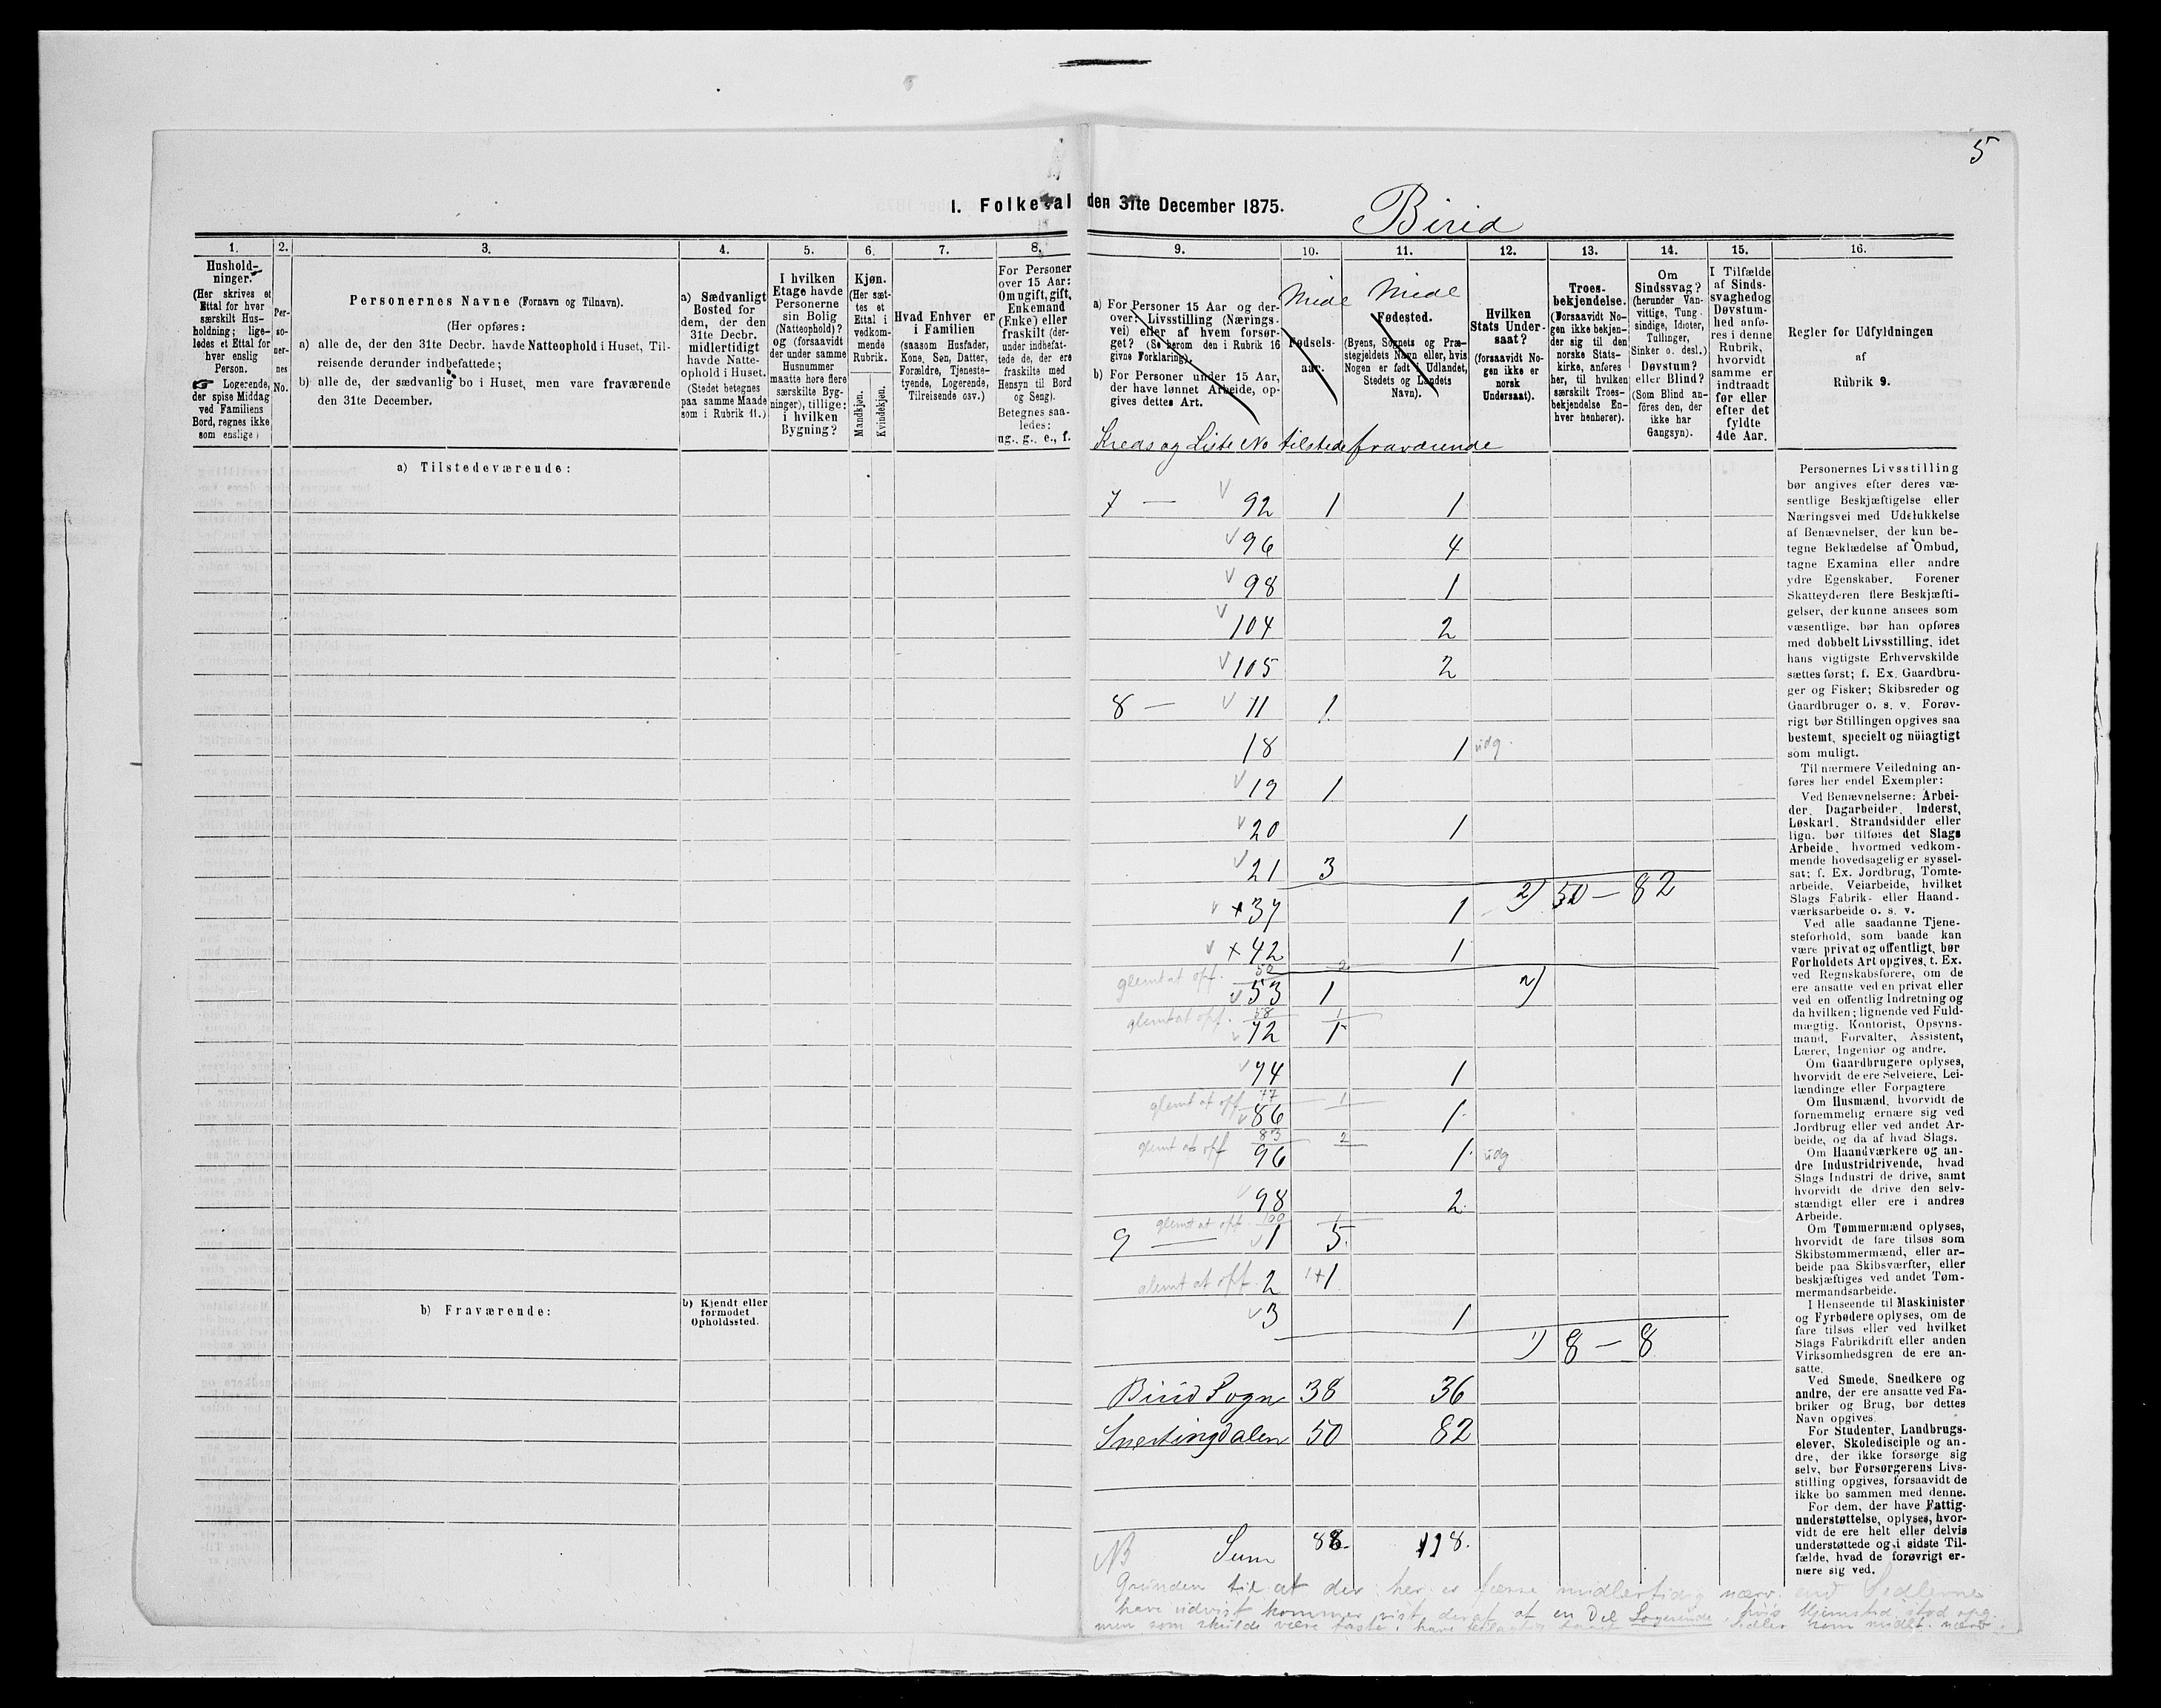 5
1. Folketal den 31te December 1875.
Birid
1.
2.
3.
4.
5.
6.
7.
8.
9.
10.
11.
12.
13.
14.
15.
16.
Hushold-
ninger.
(Her skrives et
Ettal for hver
særskilt Hus-
holdning; lige-
ledes et Ettal for
hver enslig
Person.
☞ Logerende,
der spise Middag
ved Familiens
Bord, regnes ikke
som enslige)
Per-
so-
ner-
nes
No.
Personernes Navne (Fornavn og Tilnavn).
(Her opføres:
a) alle de, der den 31te Decbr. havde Natteophold i Huset, Til-
reisende derunder indbefattede;
b) alle de, der sædvanlig bo i Huset, men vare fraværende
den 31te December.
a) Sædvanligt
Bosted for
dem, der den
31te Decbr.
midlertidigt
havde Natte-
ophold i Huset.
(Stedet betegnes
paa samme Maade
som i Rubrik 11.)
I hvilken
Etage havde
Personerne
sin Bolig
(Natteophold)?
og (forsaavidt
der under samme
Husnummer
maatte høre flere
særskilte Byg-
ninger), tillige:
i hvilken
Bygning?
Kjøn.
(Her sæt-
tes et
Ettal i
vedkom-
mende
Rubrik.
Mandkjøn.
Kvindekjøn.
Hvad Enhver er
i Familien
(saasom Husfader,
Kone, Søn, Datter,
Forældre, Tjeneste-
tyende, Logerende,
Tilreisende osv.)
For Personer
over 15 Aar:
Om ugift, gift,
Enkemand
(Enke) eller
fraskilt (der-
under indbefat-
tede de, der ere
fraskilte med
Hensyn til Bord
og Seng).
Betegnes saa-
ledes:
ug., g., e., f.
a) For Personer 15 Aar og der-
over: Livsstilling (Nærings-
vei) eller af hvem forsør-
get? (Se herom den i Rubrik 16
givne Forklaring).
b) For Personer under 15 Aar,
der have lønnet Arbeide, op-
gives dettes Art.
Midl
Fødsels-
aar.
Midl
Fødested.
(Byens, Sognets og Præ-
stegjeldets Navn eller, hvis
Nogen er født i Udlandet,
Stedets og Landets
Navn).
Hvilken
Stats Under-
saat?
(forsaavidt No-
gen ikke er
norsk
Undersaat).
Troes-
bekjendelse.
(Forsaavidt No-
gen ikke bekjen-
der sig til den
norske Stats-
kirke, anføres
her, til hvilken
særskilt Troes-
bekjendelse En-
hver henhører).
Om
Sindssvag?
(herunder Van-
vittige, Tung-
sindige, Idioter,
Tullinger,
Sinker o. desl.)
Døvstum?
eller Blind?
(Som Blind an-
føres den, der
ikke har
Gangsyn).
I Tilfælde
af Sinds-
svaghed og
Døvstum-
hed anfø-
res i denne
Rubrik,
hvorvidt
samme er
indtraadt
før eller
efter det
fyldte
4de Aar.
Regler for Udfyldningen
af
Rubrik 9.
Kreds og Liste No tilstede fraværende
a) Tilstedeværende:
7 — v 92 1 1
v 96 4
v 98 1
v 104 2
v 105 2
8 — v 11 1
18 1 udg.
v 19 1
v 20 1
v 21 3
v x 37 1 2) 50 — 82
v x 42 1
glemt at opf. 50 2
v 53 1 2)
glemt at opf. 58 1
v 72 1
v 74 1
glemt at opf 77 1
v 86 1
glemt at opf 83 2
96 1 udg
v 98 2
glemt at opf. 100 1
9 — v 1 5.
glemt at opf. 2 1+1
v 3 1
1) 8 — 8
Birid Sogn 38 36
Snertingdalen 50 82
NB Sum 88. 118.
b) Fraværende:
b) Kjendt eller
formodet
Opholdssted.
Personernes Livsstilling
bør angives efter deres væ-
sentlige Beskjæftigelse eller
Næringsvei med Udelukkelse
af Benævnelser, der kun be-
tegne Beklædelse af Ombud,
tagne Examina eller andre
ydre Egenskaber. Forener
Skatteyderen flere Beskjæfti-
gelser, der kunne ansees som
væsentlige, bør han opføres
med dobbelt Livsstilling, idet
hans vigtigste Erhvervskilde
sættes først; f. Ex. Gaardbru-
ger og Fisker; Skibsreder og
Gaardbruger o. s. v. Forøv-
rigt bør Stillingen opgives saa
bestemt, specielt og nöiagtigt
som muligt.
Til nærmere Veiledning an-
føres her endel Exempler:
Ved Benævnelserne: Arbei-
der, Dagarbeider, Inderst,
Løskarl, Strandsidder eller
lign. bør tilføies det Slags
Arbeide, hvormed vedkom-
mende hovedsagelig er syssel-
sat; f. Ex. Jordbrug, Tomte-
arbeide, Veiarbeide, hvilket
Slags Fabrik- eller Haand-
værksarbeide o. s. v.
Ved alle saadanne Tjene-
steforhold, som baade kan
være privat og offentligt, bør
Forholdets Art opgives, t. Ex.
ved Regnskabsførere, om de
ere ansatte ved en privat eller
ved en offentlig Indretning og
da hvilken; lignende ved Fuld-
mægtig, Kontorist, Opsyns-
mand, Forvalter, Assistent,
Lærer, Ingeniør og andre.
Om Gaardbrugere oplyses,
hvorvidt de ere Selveiere, Lei-
lændinge eller Forpagtere.
Om Husmænd, hvorvidt de
fornemmelig ernære sig ved
Jordbrug eller ved andet Ar-
beide, og da af hvad Slags.
Om Haandværkere og an-
dre Industridrivende, hvad
Slags Industri de drive, samt
hvorvidt de drive den selv-
stændigt eller ere i andres
Arbeide.
Om Tømmermænd oplyses,
hvorvidt de fare tilsøs som
Skibstømmermænd, eller ar-
beide paa Skibsværfter, eller
beskjæftiges ved andet Tøm-
mermandsarbeide.
I Henseende til Maskinister
og Fyrbødere oplyses, om de
fare tilsøs eller ved hvilket
Slags Fabrikdrift eller anden
Virksomhedsgren de ere an-
satte.
Ved Smede, Snedkere og
andre, der ere ansatte ved Fa-
briker og Brug, bør dettes
Navn opgives.
For Studenter, Landbrugs-
elever, Skoledisciple og an-
dre, der ikke forsørge sig
selv, bør Forsørgerens Livs-
stilling opgives, forsaavidt de
ikke bo sammen med denne.
For dem, der have Fattig-
understøttelse, oplyses, hvor-
vidt de ere helt eller delvis
understøttede og i sidste Til-
fælde, hvad de forøvrigt er-
nære sig ved.
Grunden til at der her er færre midlertidig nærv. end Sedlerne
have udvist kommer vist deraf at en Del Logerende, hvis Hjemsted stod opg.
men som skulde være faste, have Sedler som midlt. nærv.